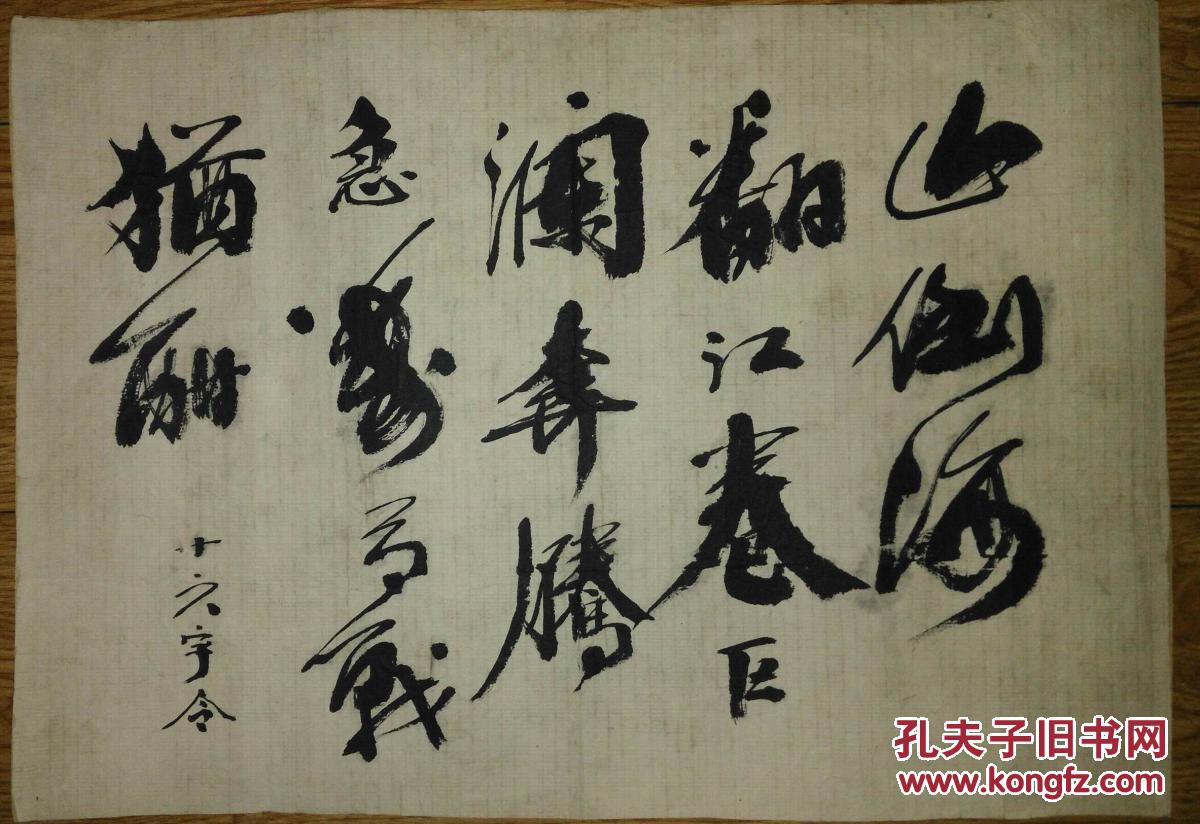 山倒海
翻江卷巨
澜奔騰
急萬馬戰
猶酣
十六字令
孔夫子旧书网
www.kongfz.com